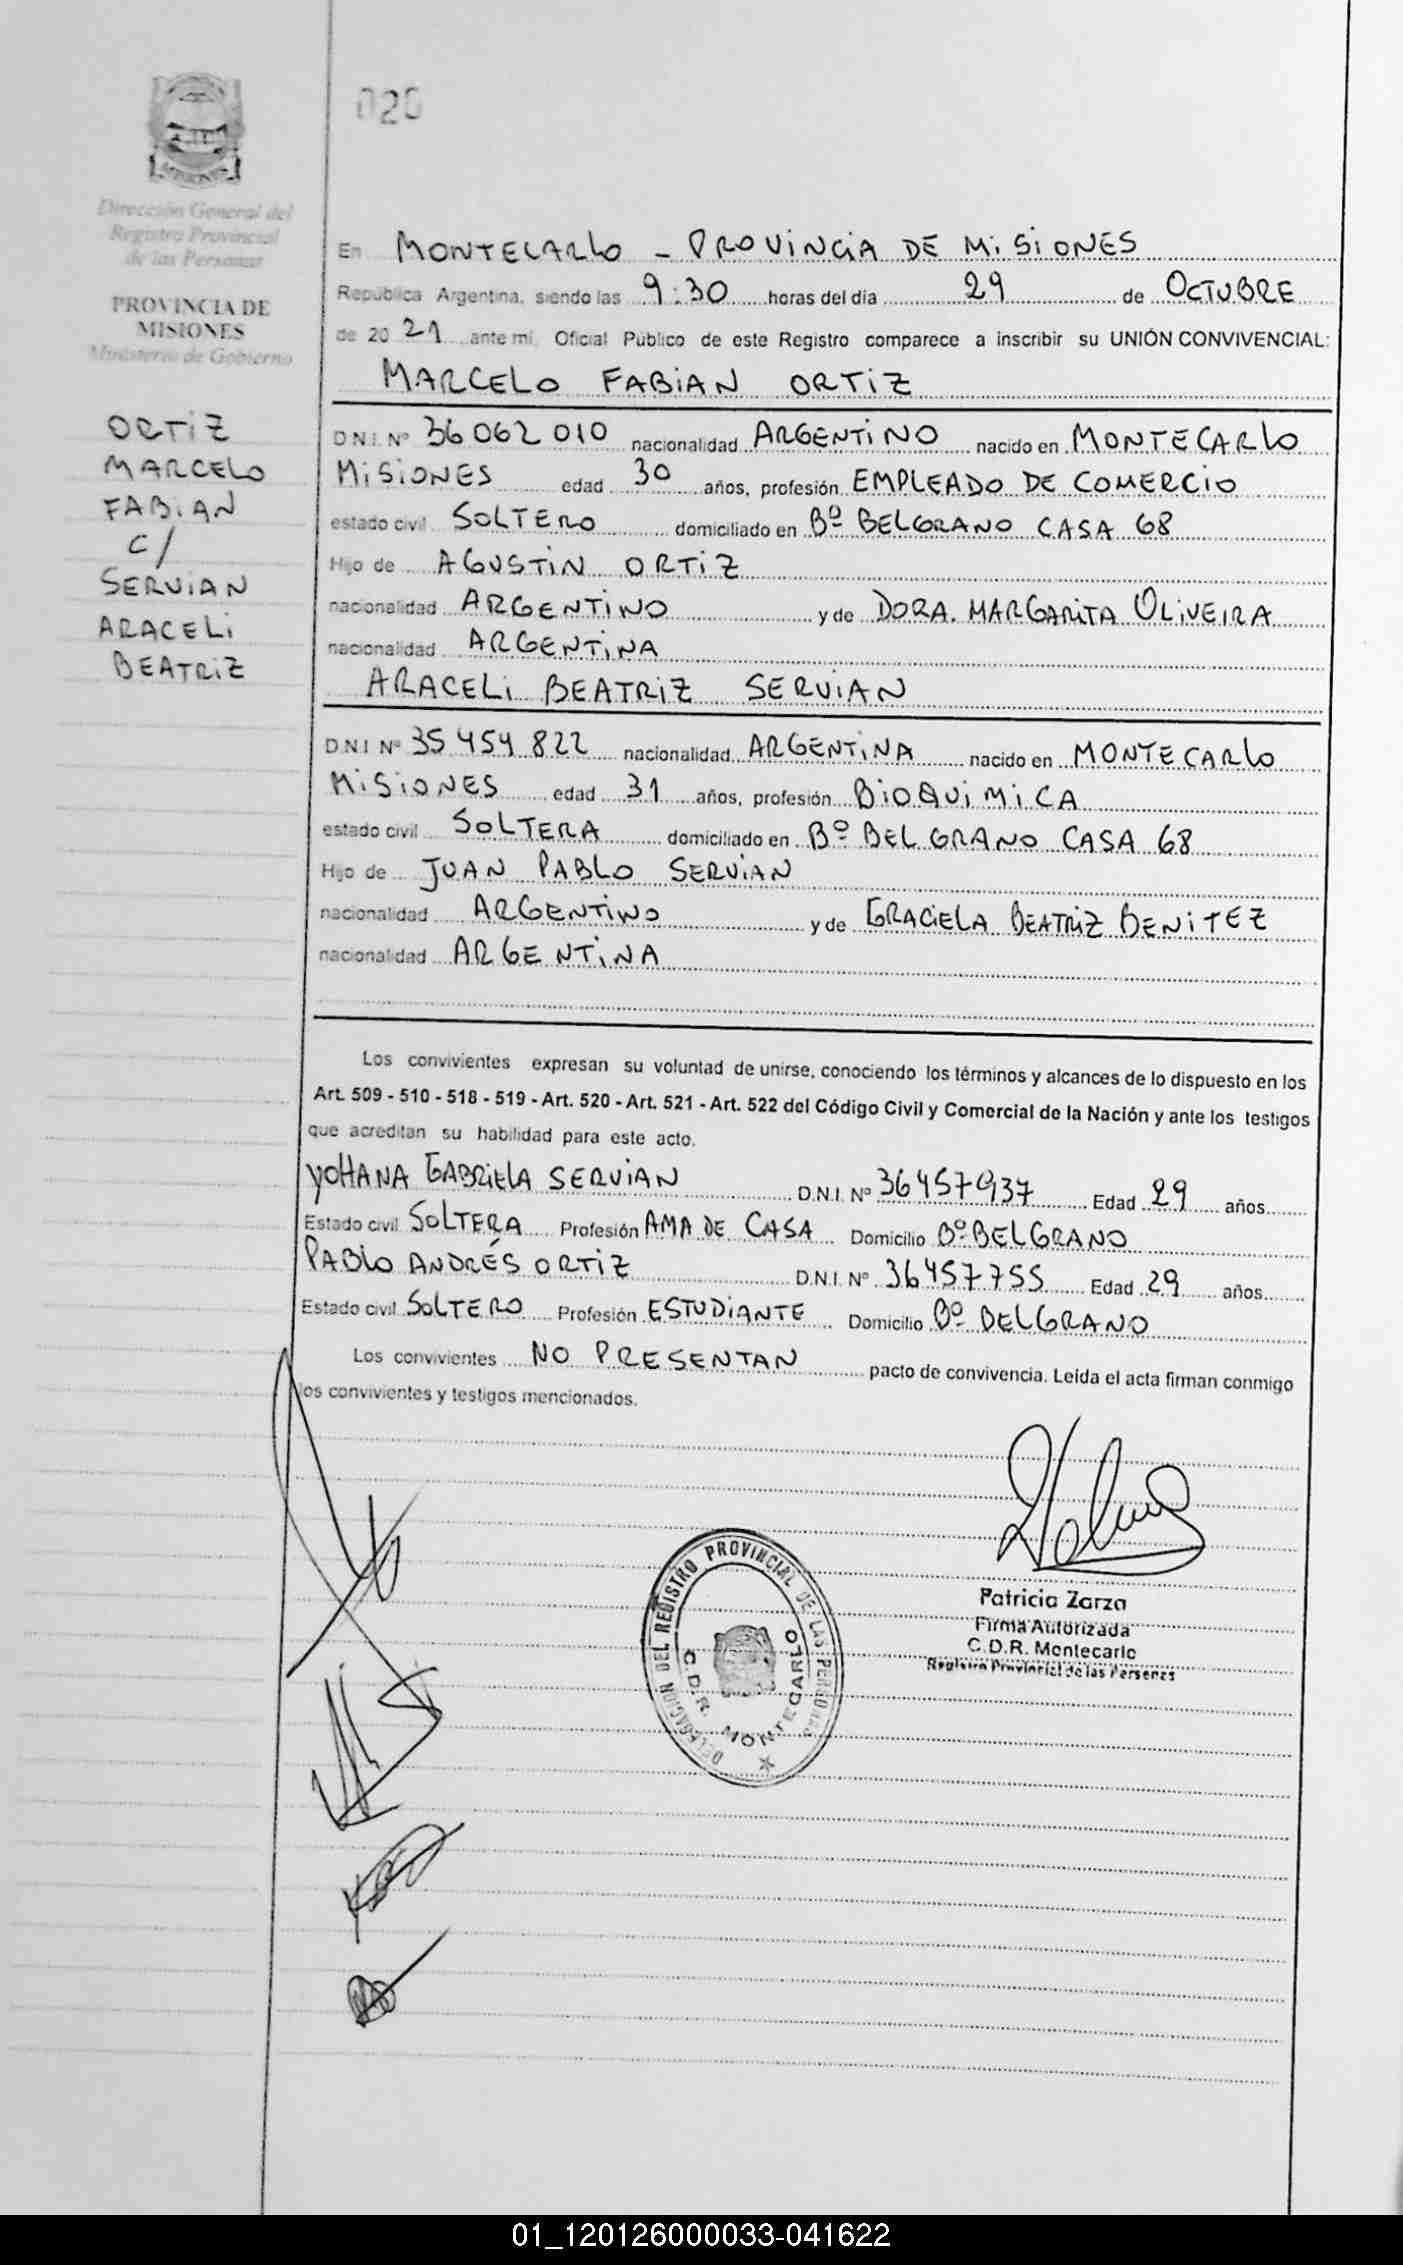 020
Dirección General del
Registro Provincial
de las Personas
PROVINCIA DE
MISIONES
Ministerio de Gobierno
ORTIZ
MARCELO
FABIAN
C/
SERVIAN
ARACELI
BEATRIZ
En MONTECARLO - PROVINCIA DE MISIONES
República Argentina, siendo las 9:30 horas del día 29 de OCTUBRE
de 2021 ante mí, Oficial Público de este Registro comparece a inscribir su UNIÓN CONVIVENCIAL:
MARCELO FABIAN ORTIZ
D.N.I. Nº 36 062 010 nacionalidad ARGENTINO nacido en MONTECARLO
MISIONES edad 30 años, profesión EMPLEADO DE COMERCIO
estado civil SOLTERO domiciliado en Bº BELGRANO CASA 68
Hijo de AGUSTIN ORTIZ
nacionalidad ARGENTINO y de DORA MARGARITA OLIVEIRA
nacionalidad ARGENTINA
ARACELI BEATRIZ SERVIAN
D.N.I Nº 35 454 822 nacionalidad ARGENTINA nacido en MONTECARLO
MISIONES edad 31 años, profesión BIOQUIMICA
estado civil SOLTERA domiciliado en Bº BELGRANO CASA 68
Hijo de JUAN PABLO SERVIAN
nacionalidad ARGENTINO y de GRACIELA BEATRIZ BENITEZ
nacionalidad ARGENTINA
Los convivientes expresan su voluntad de unirse, conociendo los términos y alcances de lo dispuesto en los
Art. 509 - 510 - 518 - 519 - Art. 520 - Art. 521 - Art. 522 del Código Civil y Comercial de la Nación y ante los testigos
que acreditan su habilidad para este acto.
YOHANA GABRIELA SERVIAN D.N.I. Nº 36457937 Edad 29 años
Estado civil SOLTERA Profesión AMA DE CASA Domicilio Bº BELGRANO
PABLO ANDRÉS ORTIZ D.N.I. Nº 36457755 Edad 29 años
Estado civil SOLTERO Profesión ESTUDIANTE Domicilio Bº BELGRANO
Los convivientes NO PRESENTAN pacto de convivencia. Leída el acta firman conmigo
los convivientes y testigos mencionados.
DELEGACION DEL REGISTRO PROVINCIAL DE LAS PERSONAS
C.D.R. MONTECARLO
Patricia Zarza
Firma Autorizada
C.D.R. Montecarlo
Registro Provincial de las Personas
01_120126000033-041622